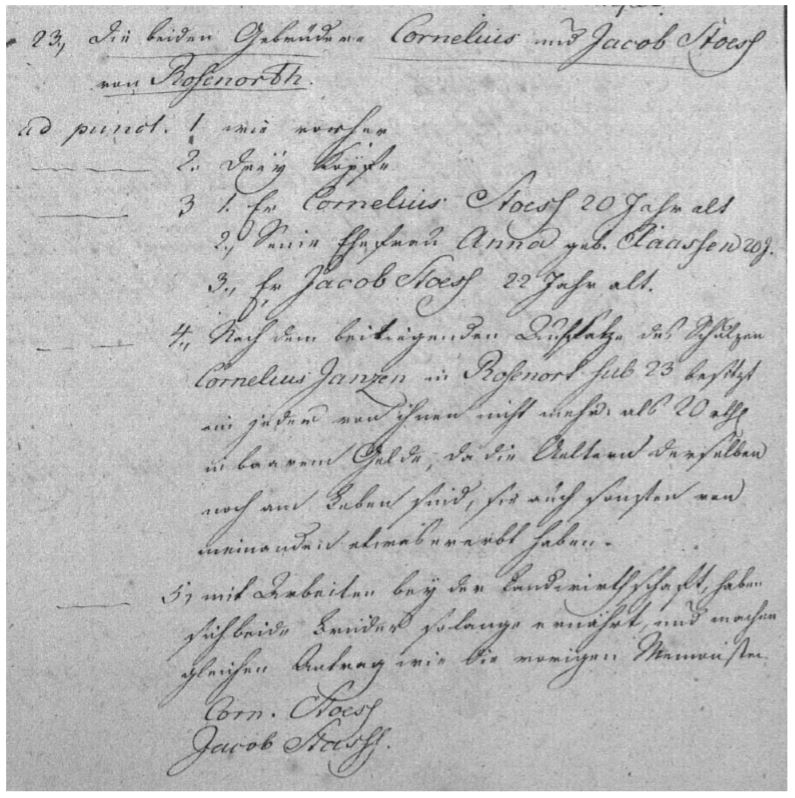 23., Die beiden Gebrüdere Cornelius und Jacob Stoess
von Rosenorth.
ad punct. 1 wie vorher
2. Drey Köpfe
3 1. Er Cornelius Stoess 20 Jahr alt
2., Seine Ehefrau Anna geb. Claassen 20 J.
3., Er Jacob Stoess 22 Jahr alt.
4., Nach dem beiliegenden Aufsatze des Schulzen
Cornelius Janzen in Rosenort sub 23 besitzt
ein jeder von ihnen nicht mehr als 20 rthl
in baarem Gelde, da die Aeltern derselben
noch am Leben sind, sie auch sonsten von
niemanden etwas ererbt haben.
5, mit Arbeiten bey der Landwirthschaft, haben
sich beide Brüder solange ernährt, und machen
gleichen Antrag wie die vorigen Memonisten
Corn. Stoess
Jacob Stoess.